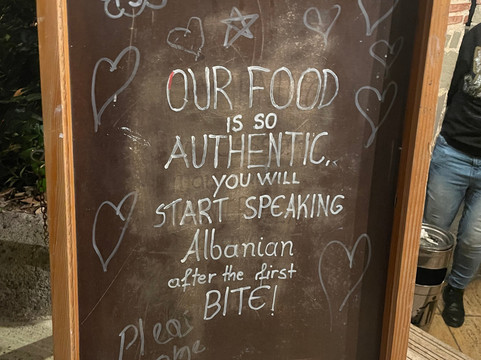 OUR FOOD
IS SO
AUTHENTIC,
YOU WILL
START SPEAKING
Albanian
after the first
BITE!